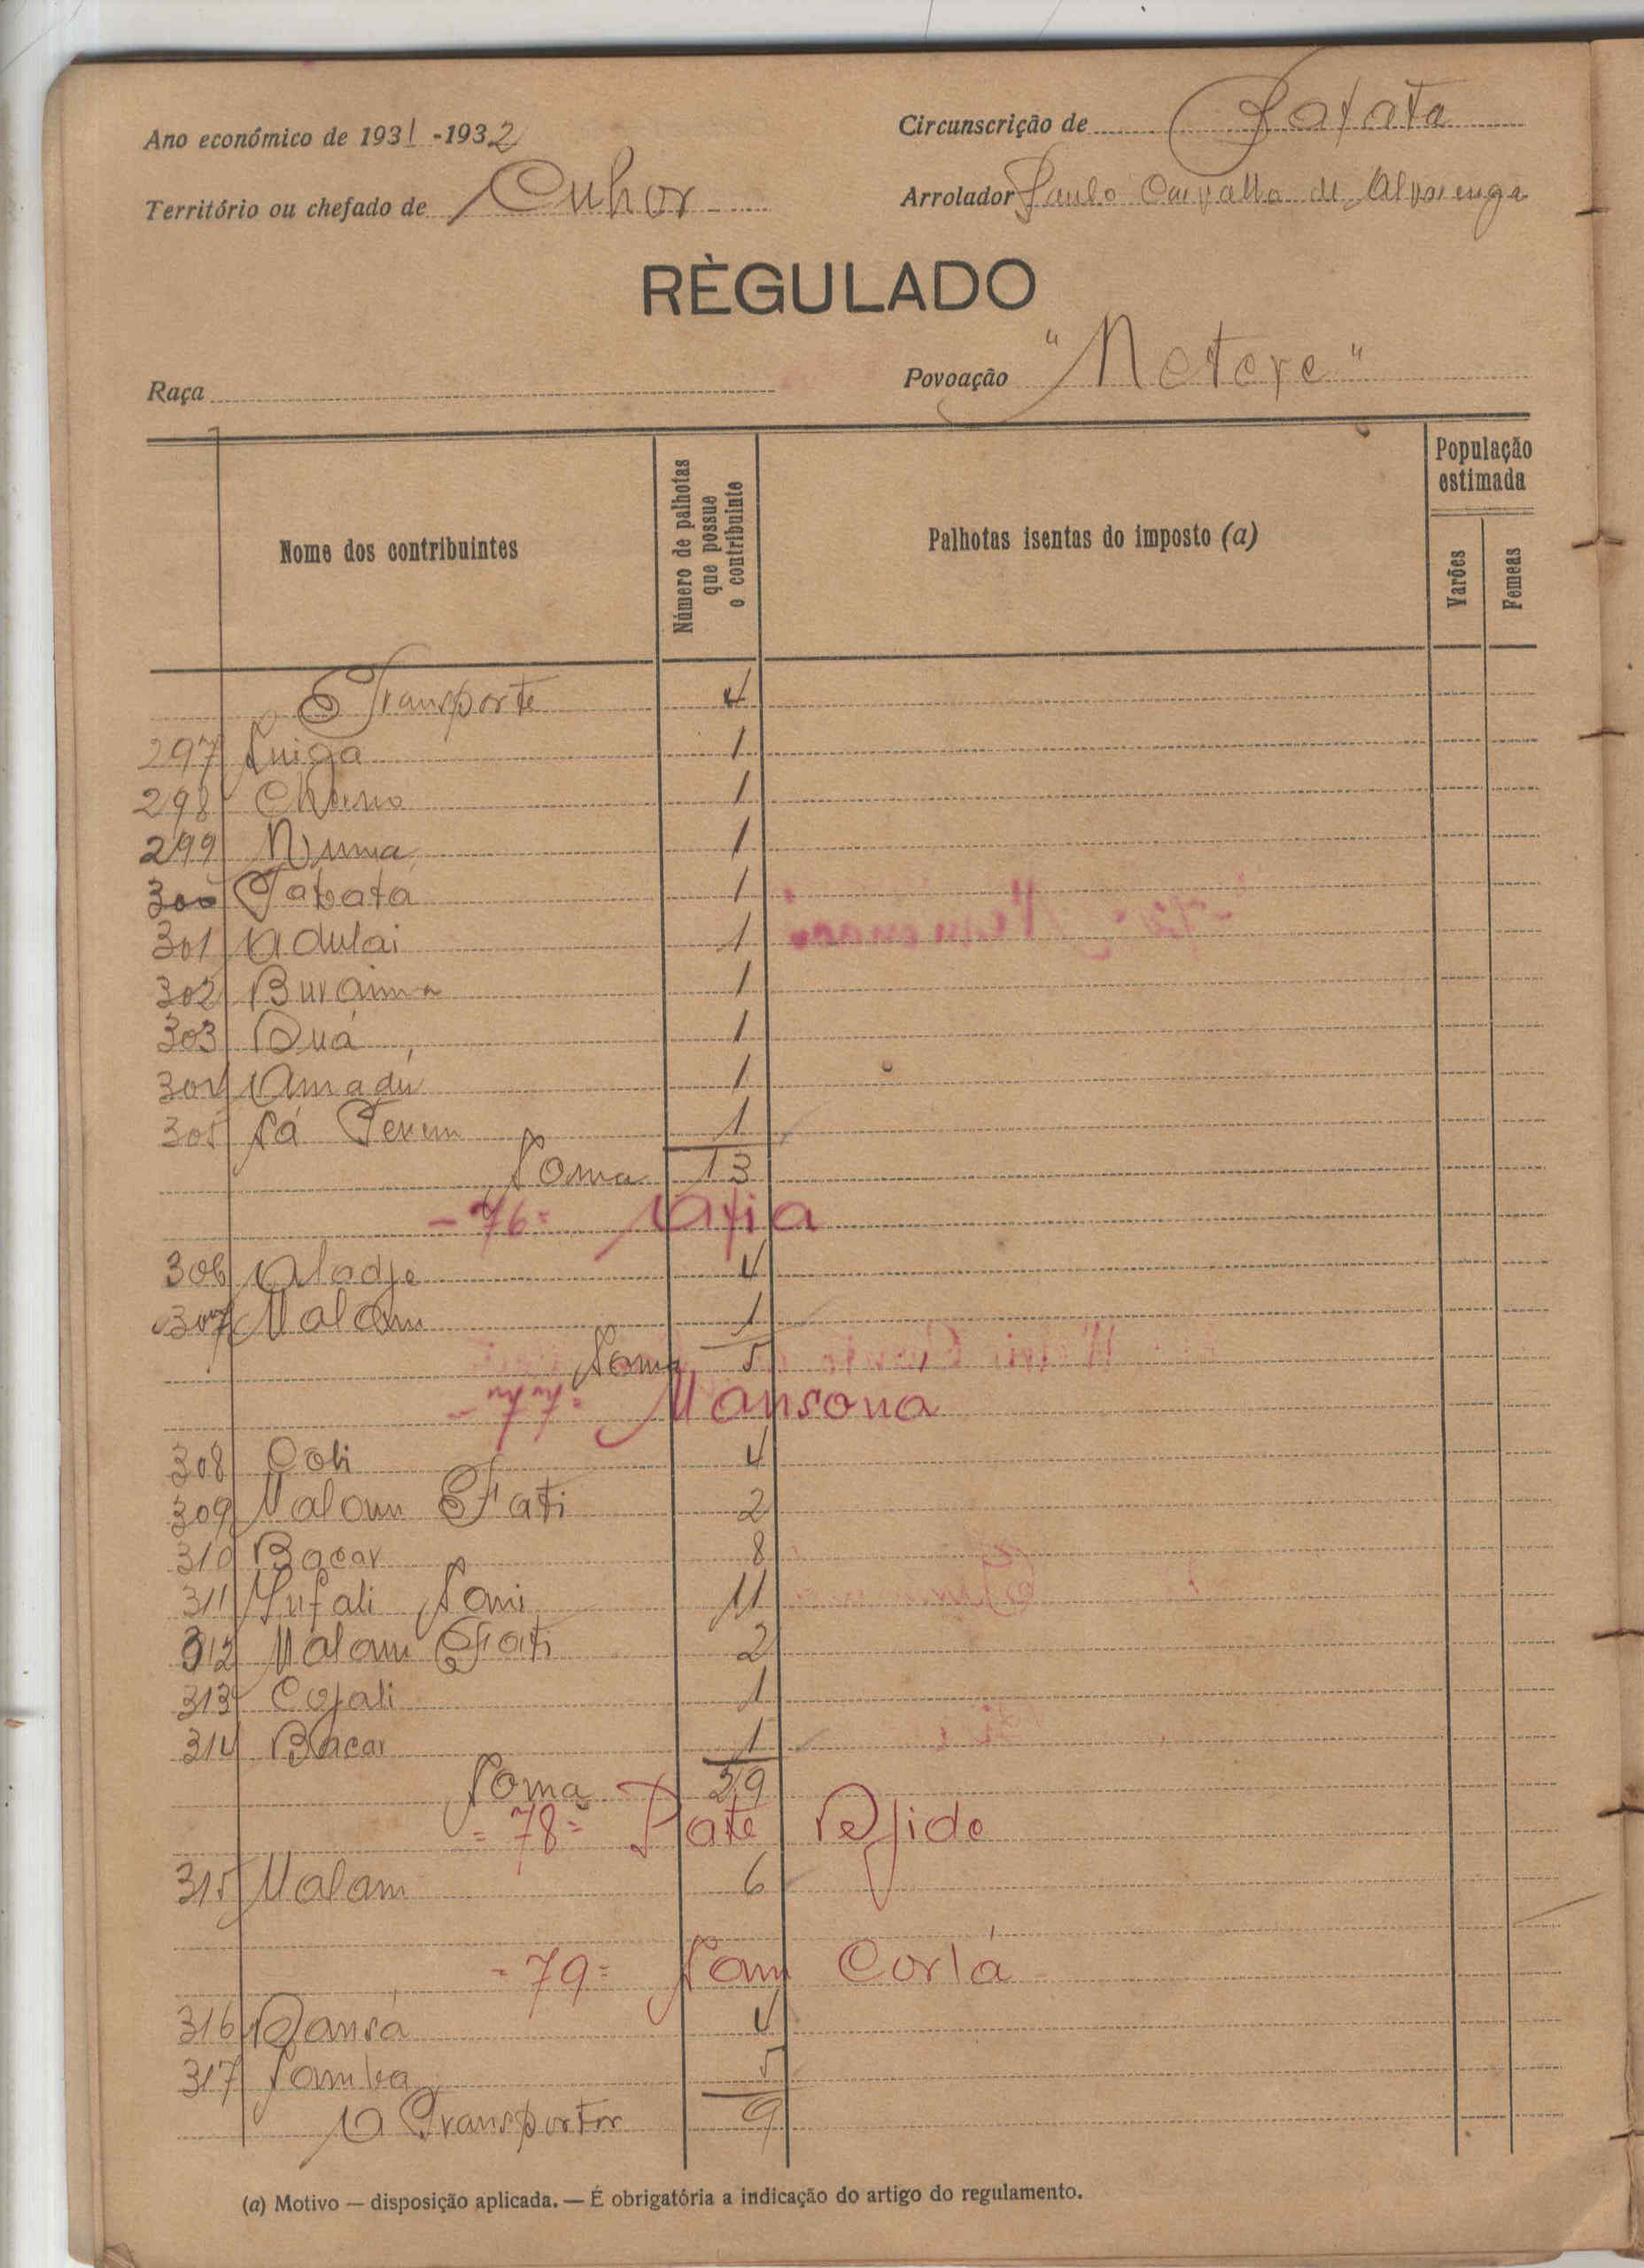 Ano económico de 1931-1932
Circunscrição de Bafata
Território ou chefado de Cuhor
Arrolador Paulo Carvalho de Alvarenga
RÈGULADO
Raça
Povoação "Metere"
Nome dos contribuintes
Número de palhotas que possue o contribuinte
Palhotas isentas do imposto (a)
População estimada
Varões
Femeas
Transporte 4
297 Suiga 1
298 1
299 1
300 Tabatá 1
301 Adulai 1
302 Buraima 1
303 Duá 1
304 Amadú 1
305 Sá 1
Soma 13
-76= Afia
306 Aladje 4
307 Malam 1
Soma 5
-77= Mansona
308 Coli 4
309 Malam Fati 2
310 Bacar 8
311 Sufali Sani 11
312 Malam Fati 2
313 Cofali 1
314 Bacar 1
Soma 29
=78= Paté
315 Malam 6
-79= Sam Corlá
316 Dansá 4
317 Samba 5
A Transportar 9
(a) Motivo — disposição aplicada. — É obrigatória a indicação do artigo do regulamento.